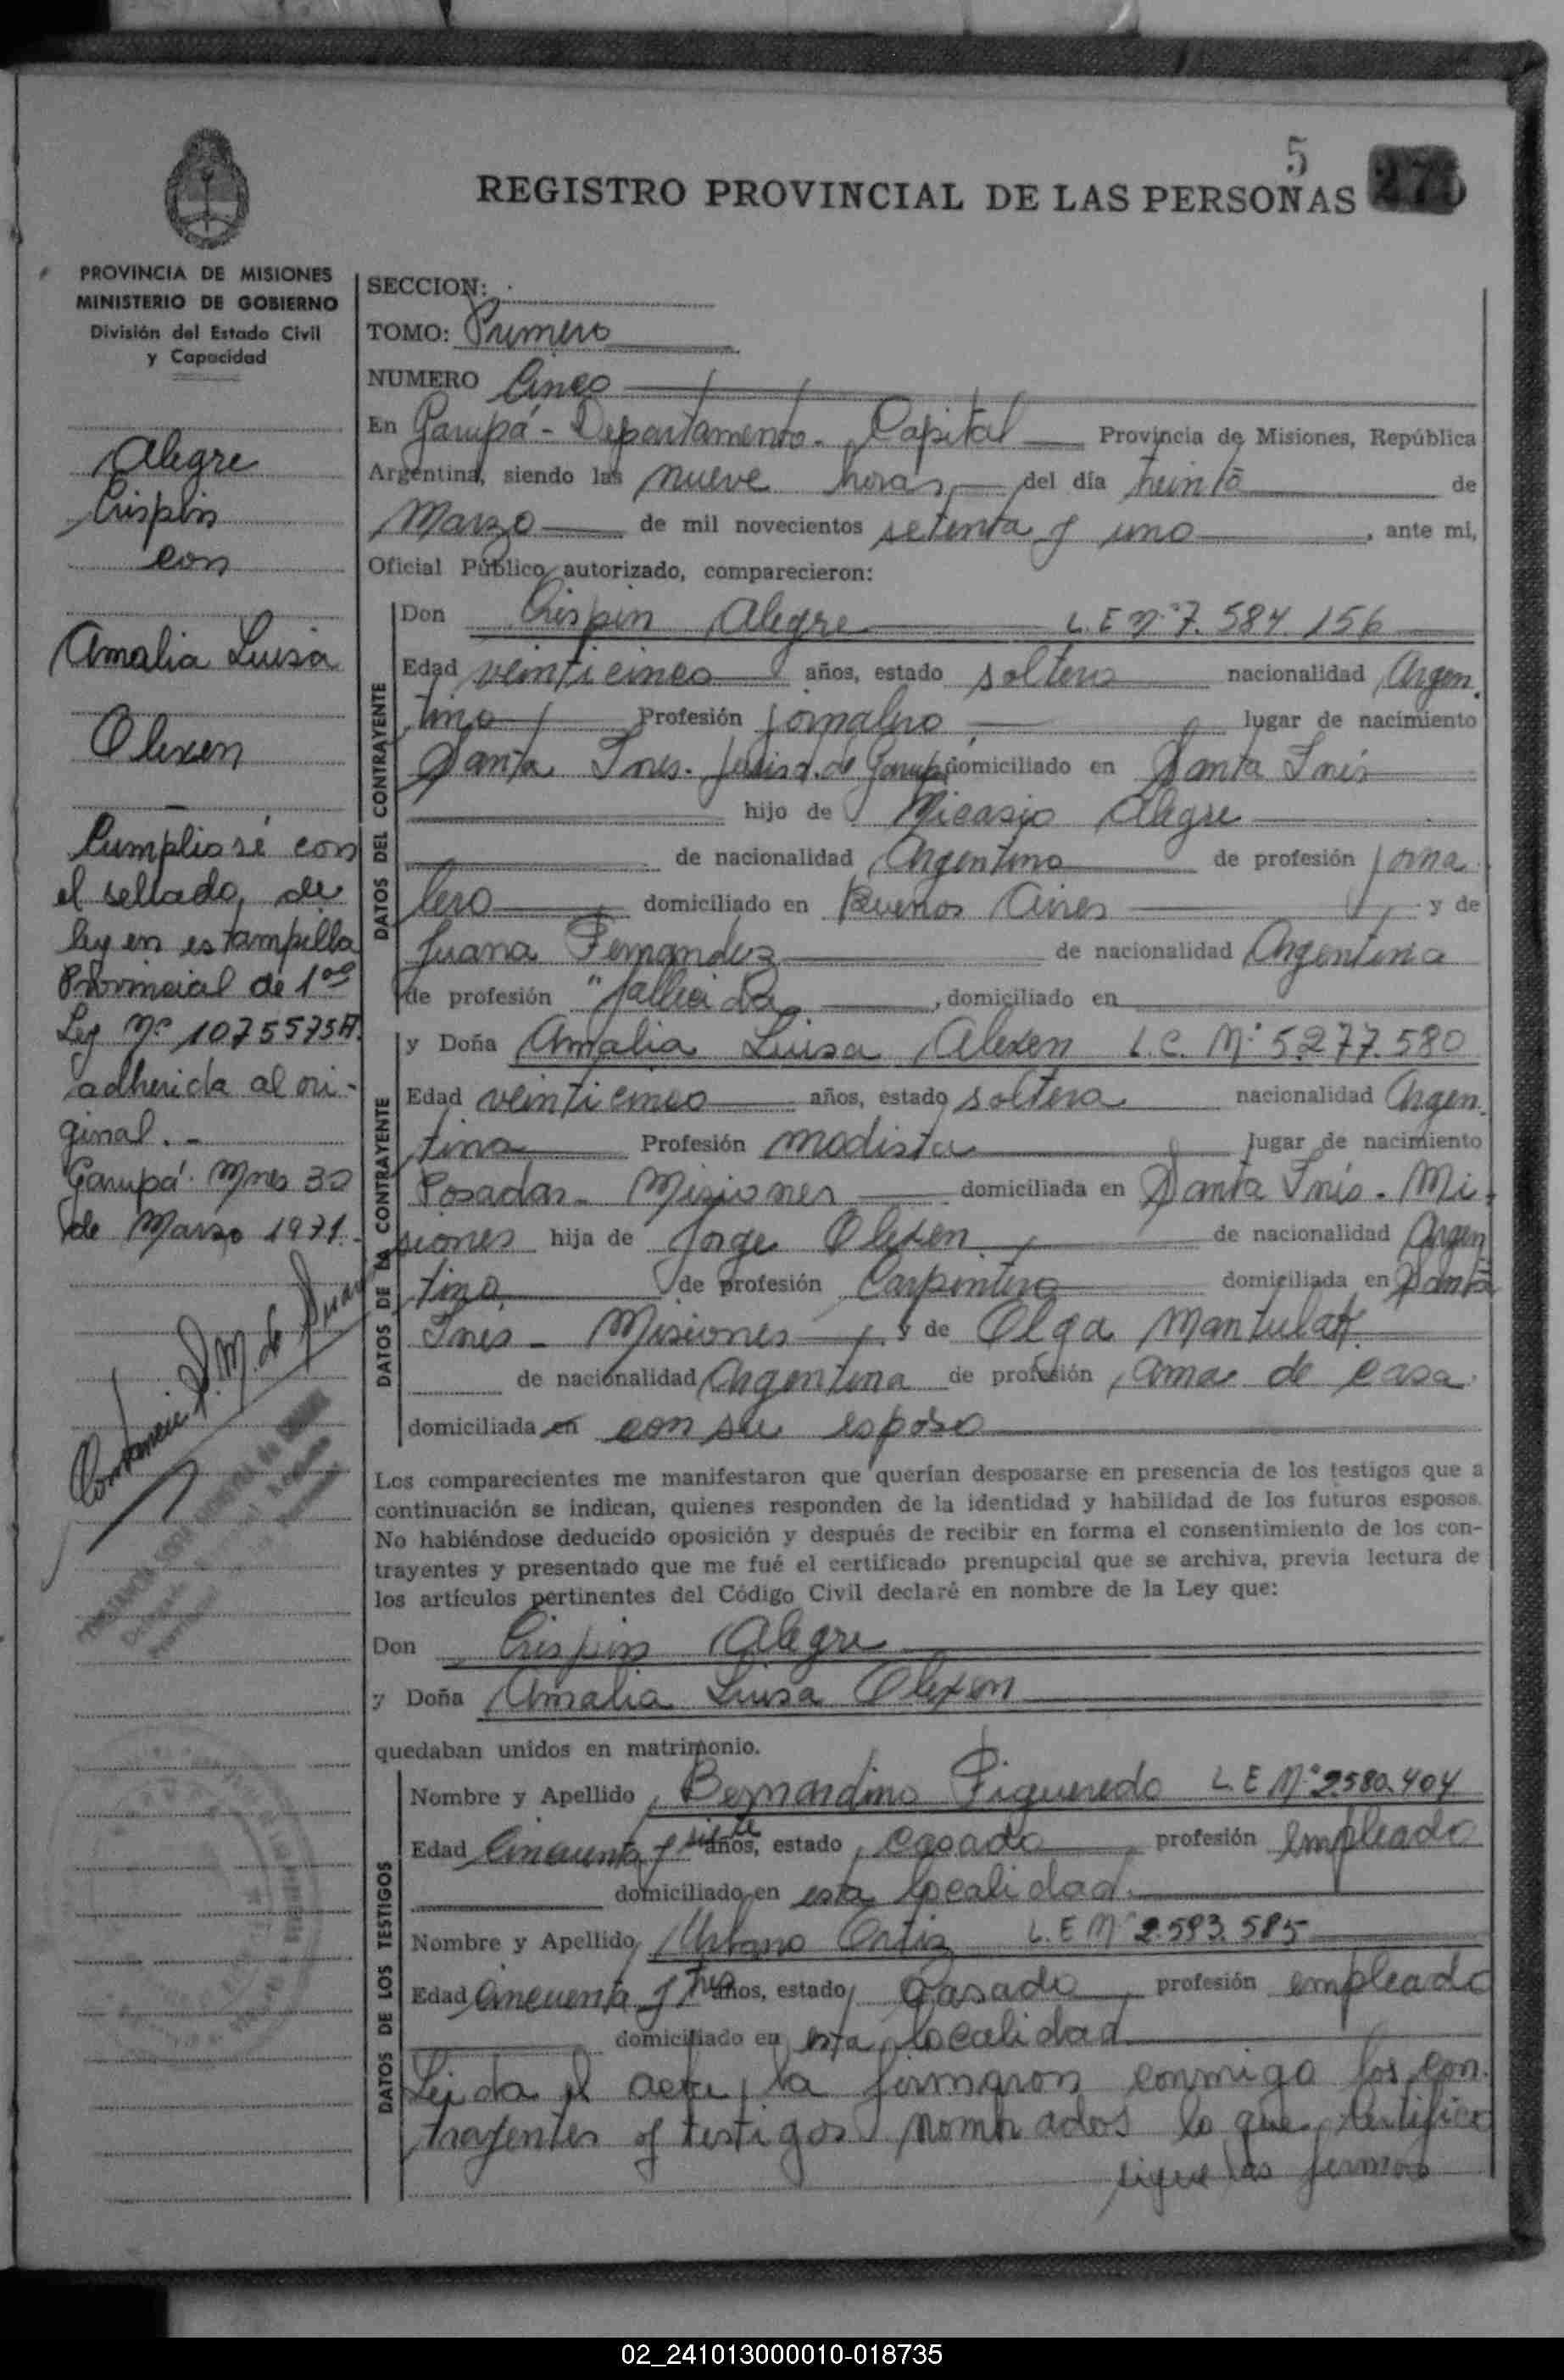 5
REGISTRO PROVINCIAL DE LAS PERSONAS 275
PROVINCIA DE MISIONES
MINISTERIO DE GOBIERNO
División del Estado Civil
y Capacidad
Alegre
Crispin
con
Amalia Luisa
Olexen
Cumpliosé con
el sellado, de
ley en estampilla
Provincial de 1ºº
Ley Nº 1075575A.
adherida al ori-
ginal.-
Garupá. Mnes 30
de Marzo 1971.-
SECCION:
TOMO: Primero
NUMERO Cinco
En Garupá - Departamento. Capital Provincia de Misiones, República
Argentina, siendo las nueve horas, del día treinta de
Marzo de mil novecientos setenta y uno, ante mi,
Oficial Público autorizado, comparecieron:
DATOS DEL CONTRAYENTE
Don Crispin Alegre L.E Nº 7.584.156
Edad veinticinco años, estado soltero nacionalidad Argen.
tino Profesión jornalero lugar de nacimiento
Santa Ines. Jurisd. de Garup domiciliado en Santa Inés
hijo de Nicasio Alegre
de nacionalidad Argentino de profesión jorna
lero domiciliado en Buenos Aires y de
Juana Fernandez de nacionalidad Argentina
de profesión "fallecida, domiciliado en
DATOS DE LA CONTRAYENTE
y Doña Amalia Luisa Olexen L.C. Nº 5.277.580
Edad veinticinco años, estado soltera nacionalidad Argen.
tina Profesión modista lugar de nacimiento
Posadas - Misiones domiciliada en Santa Inés. Mi.
siones hija de Jorge Olexen de nacionalidad Argen
tino de profesión Carpintero domiciliada en Santa
Ines - Misiones y de Olga Mantulak
de nacionalidad Argentina de profesión ama de casa
domiciliada en con su esposo
Los comparecientes me manifestaron que querían desposarse en presencia de los testigos que a
continuación se indican, quienes responden de la identidad y habilidad de los futuros esposos.
No habiéndose deducido oposición y después de recibir en forma el consentimiento de los con-
trayentes y presentado que me fué el certificado prenupcial que se archiva, previa lectura de
los artículos pertinentes del Código Civil declaré en nombre de la Ley que:
Don Crispin Alegre
y Doña Amalia Luisa Olexen
quedaban unidos en matrimonio.
DATOS DE LOS TESTIGOS
Nombre y Apellido Bernardino Figueredo L.E Nº 2.580.404
Edad Cincuenta y siete años, estado casado profesión empleado
domiciliado en esta localidad.
Nombre y Apellido Urbano Ortiz L.E Nº 2.593.585
Edad cincuenta y tres años, estado casado profesión empleado
domiciliado en esta localidad
Leida el acta, la firmaron conmigo los con.
trayentes y testigos nombrados lo que certifico
sigue las firmas
02_241013000010-018735